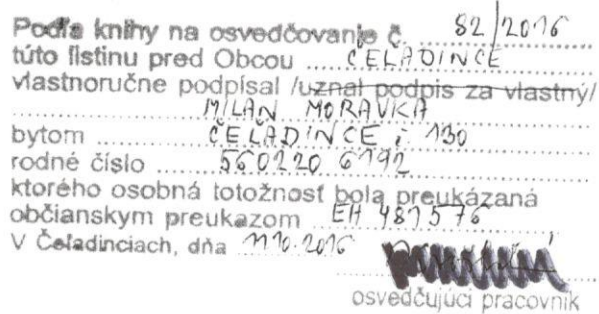 Podľa knihy na osvedčovanie č. 82/2016
túto listinu pred Obcou ČELADINCE
vlastnoručne podpísal /uznal podpis za vlastný/
MILAN MORAVKA
bytom ČEĽADINCE č. 130
rodné číslo 560220 6192
ktorého osobná totožnosť bola preukázaná
občianskym preukazom EH 481576
V Čeľadinciach, dňa 11.10.2016
osvedčujúci pracovník